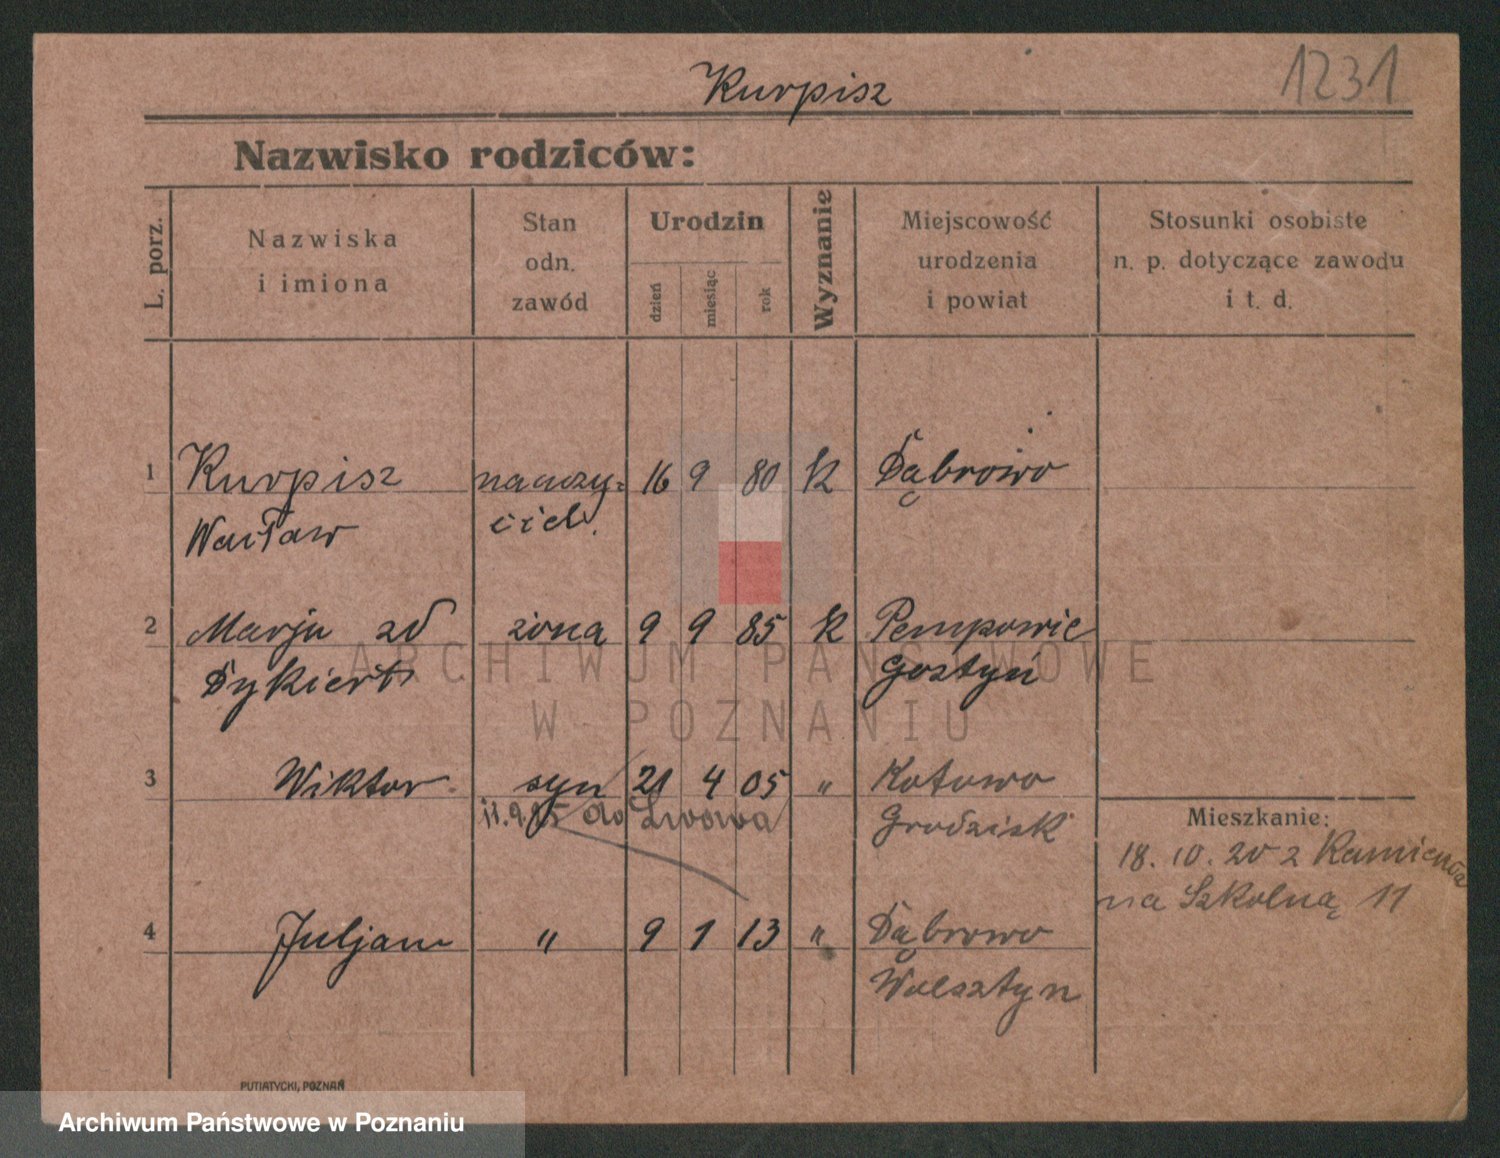 Kurpisz
1231
Nazwisko rodziców:
L. porz.
Nazwiska
i imiona
Stan
odn.
zawód
Urodzin
dzień
miesiąc
rok
Wyznanie
Miejscowość
urodzenia
i powiat
Stosunki osobiste
n. p. dotyczące zawodu
i t. d.
1 Kurpisz nauczy= 16 9 80 k Dąbrowo
Wacław ciel.
2 Marja zd żona 9 9 85 k Pempowie
Dykiert Gostyń
3 Wiktor syn 21 4 05 " Kotowo
11.9.25 do Lwowa Grodzisk
Mieszkanie:
18. 10. 20 z Kamieńca
na Szkolną 11
4 Juljan " 9 1 13 " Dąbrowo
Wolsztyn
PUTIATYCKI, POZNAŃ
ARCHIWUM PAŃSTWOWE
W POZNANIU
Archiwum Państwowe w Poznaniu